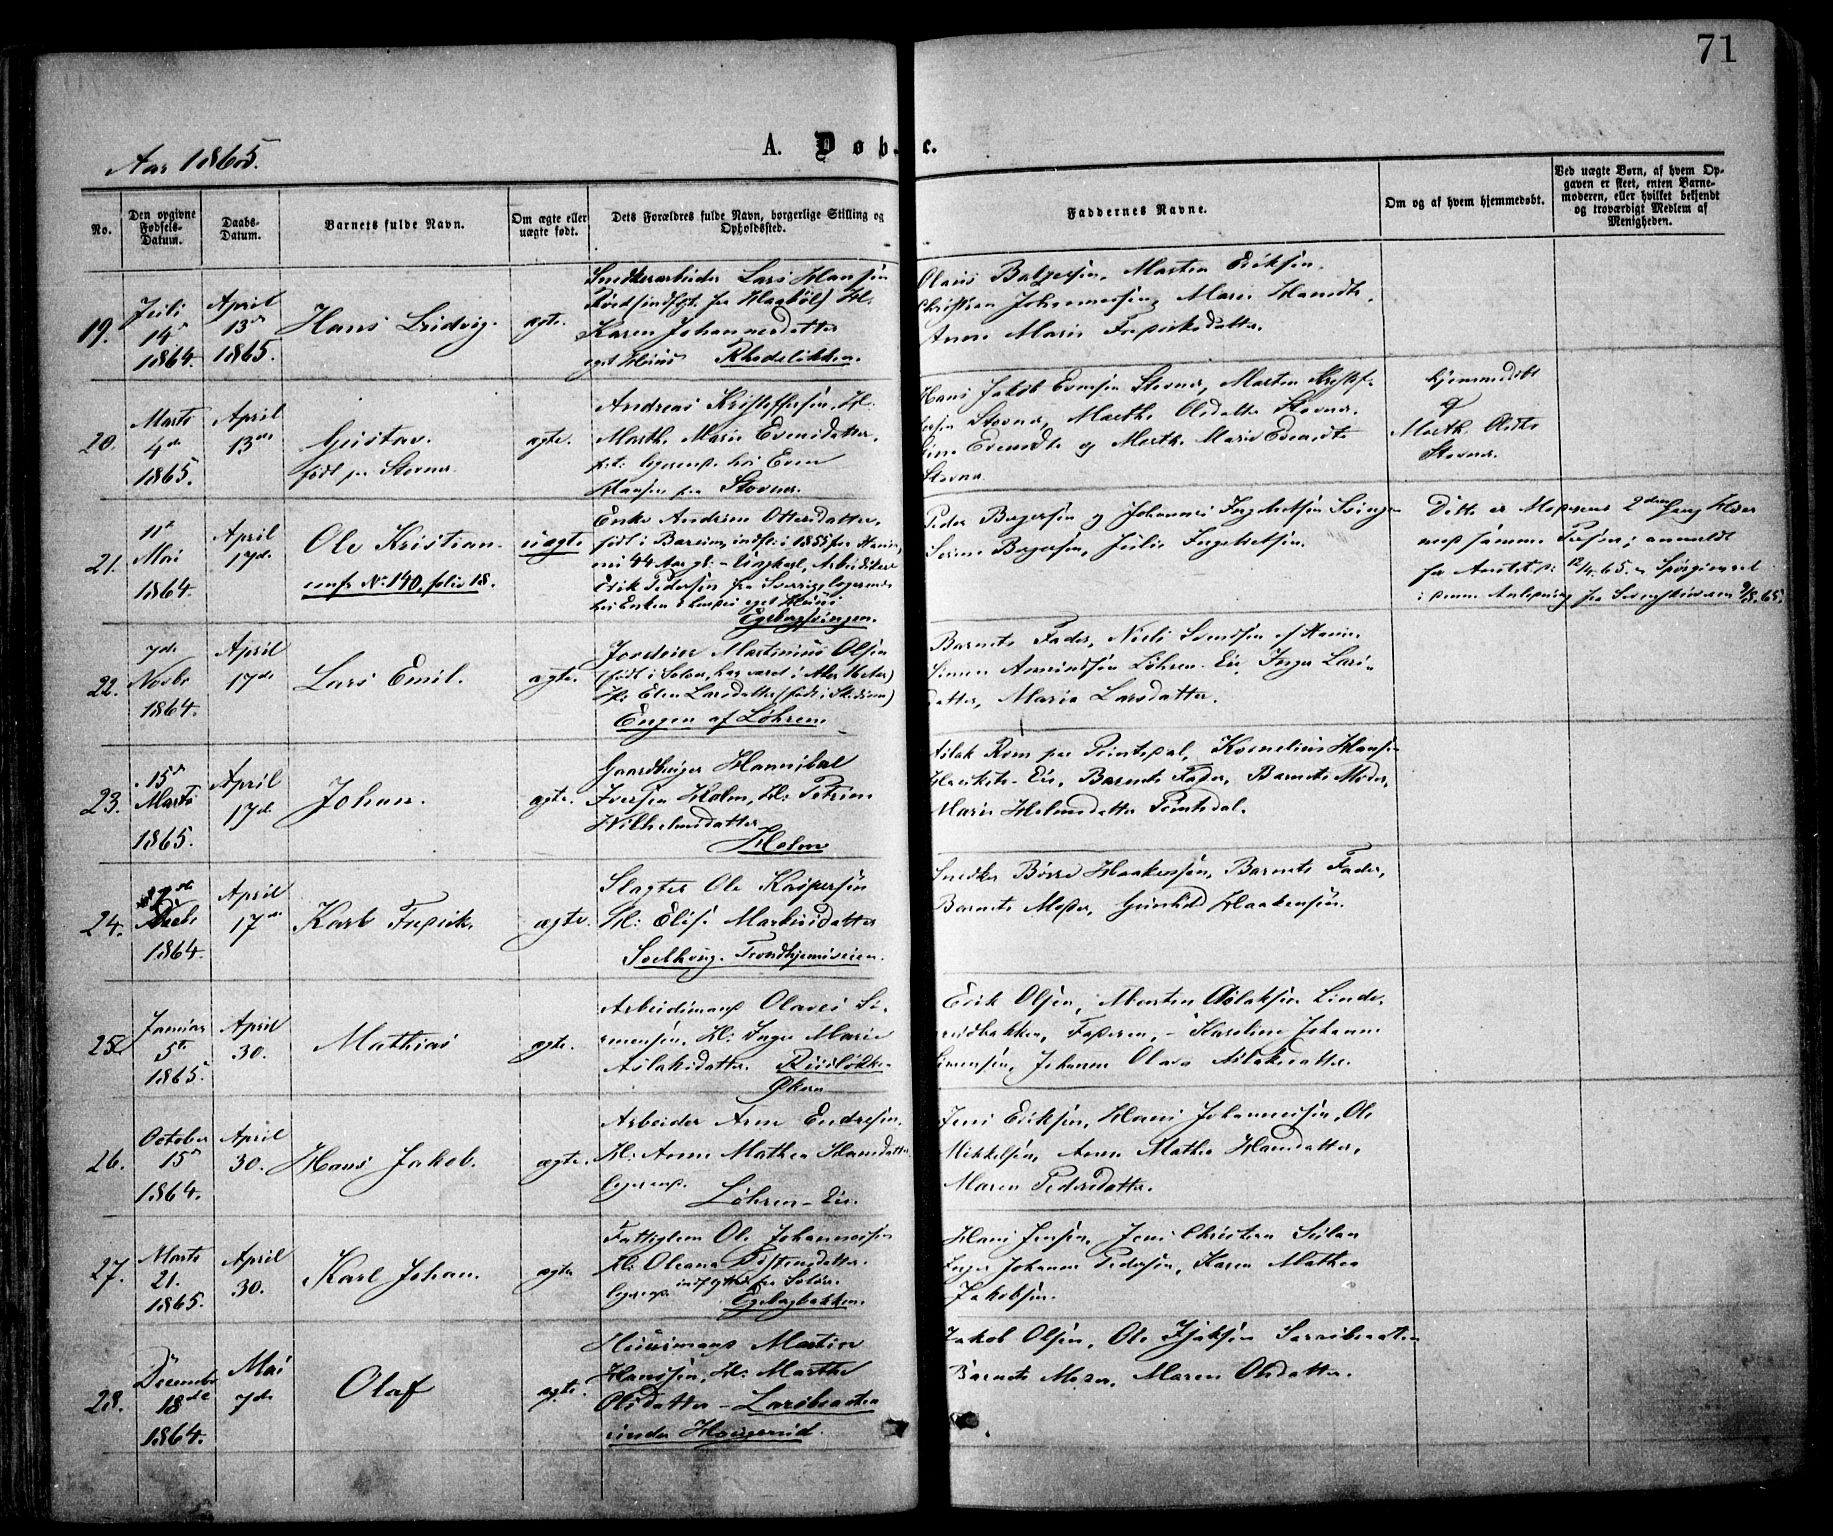 71
Aar 1865.
A. Døbte.
No.
Den opgivne Fødsels-Datum.
Daabs-Datum.
Barnets fulde Navn.
Om ægte eller uægte født.
Dets Forældres fulde Navn, borgerlige Stilling og Opholdssted.
Faddernes Navne.
Om og af hvem hjemmedøbt.
Ved uægte Børn, af hvem Opgaven er skeet, enten Barnemoderen, eller hvilket bekjendt og troværdigt Medlem af Menigheden.
19.
Juli
14de
1864
April
13de
1865.
Hans Ludvig.
ægte.
Snedkerarbeider Lars Hansen
Karen Johannesdatter
eget Huus Rhodeløkken.
Olaus Balzersen, Marten Eriksen,
Christian Johannessen, Maren Hansdtr,
Anne Marie Fredriksdatter.
20.
Marts
4de
1865.
April
13de
Gustav.
født paa Stovner
ægte.
Andreas Kristoffersen, H:
Marthe Marie Evensdatter,
hos Even
Hansen paa Stovner.
Hans Jakob Evensen Stovner, Marten Kristof-
fersen Stovner, Marthe Olsdatter Stovner,
Evensdtr og Marthe Marie Evensdtr
Stovner
hjemmedøbt
af
Marth. Olsdtr
Stovner.
21.
11te
Mai
1864
April
17de
Ole Kristian
conf. No. 140, folio 18.
uægte
Enke Andrine Ottersdatter,
født i Bærum, indfl: i 1855 fra
44 Aar gl: – Ungkarl, Arbeidskarl
Erik Pedersen fra Sverrig logerende
hos Enken eget Huus
Egebergsvingen.
Peder Borgersen og Johannes Ingebretsen Svingen
Borgersen, Julie Ingebretsen.
Dette er Moderens 2den Gang
med samme Person; anmeldt
for Amtet d: 12/4. 65.
22.
7de
Novbr
1864.
April
17de
Lars Emil.
ægte.
Martinius Olsen
(født i Solør, har været i Aker
H: Elen Larsdatter (født i Skedsmo)
Engen af Løhren
Barnets Fader, Niels Svendsen
Simen Amundsen Løhren-Eie, Inger Lars-
datter, Maria Larsdatter.
23.
15de
Marts
1865.
April
17de
Johan.
ægte.
Gaardbruger Hannibal
Iversen Holm, H: Petrine
Wilhelmsdatter
Holm
Aslak Rom paa Kornelius Hansen
Eie, Barnets Fader, Barnets Moder,
Marie
24.
Decbr
1864.
April
17de
Karl Fredrik.
ægte.
Slagter Ole Kaspersen
H: Elise Markusdatter
Solhaug. Trondhjemsveien.
Snedker Børre Haakensen, Barnets Fader,
Barnets Moder, Gunhild Haakensen.
25.
Januar
5te
1865.
April
30.
Mathias
ægte.
Arbeidsmand Olaves Si-
mensen, H: Inger Marie
Aslaksdatter. Risløkken
Økern
Erik Olsen, Morten Aslaksen Linde-
rudbakken, Faderen, – Karoline Johanne
Simensen, Johanne Olava Aslaksdatter.
26.
October
15de
1864.
April
30.
Hans Jakob.
ægte.
Arbeider Arne Endresen,
H: Anne Mathea Hansdatter
logerende
Løhren-Eie.
Jens Eriksen, Hans Johannesen, Ole
Mikkelsen, Anne Mathea Hansdatter,
Maren Pedersdatter.
27.
Marts
21.
1865.
April
30.
Karl Johan.
ægte
Fattiglem Ole Johannesen
H: Oleana
logerende indflyttet fra Solør.
Egebergbakken.
Hans Jensen, Jens Christian
Inger Johanne Pedersen, Karen Mathea
Jakobsen.
28.
December
18de
1864.
Mai
7de
Olaf
ægte.
Huusmand Martin
Hansen, H: Marthe
Olsdatter – Larsbraaten
under Haugerud.
Jakob Olsen, Ole
Barnets Moder, Maren Olsdatter.